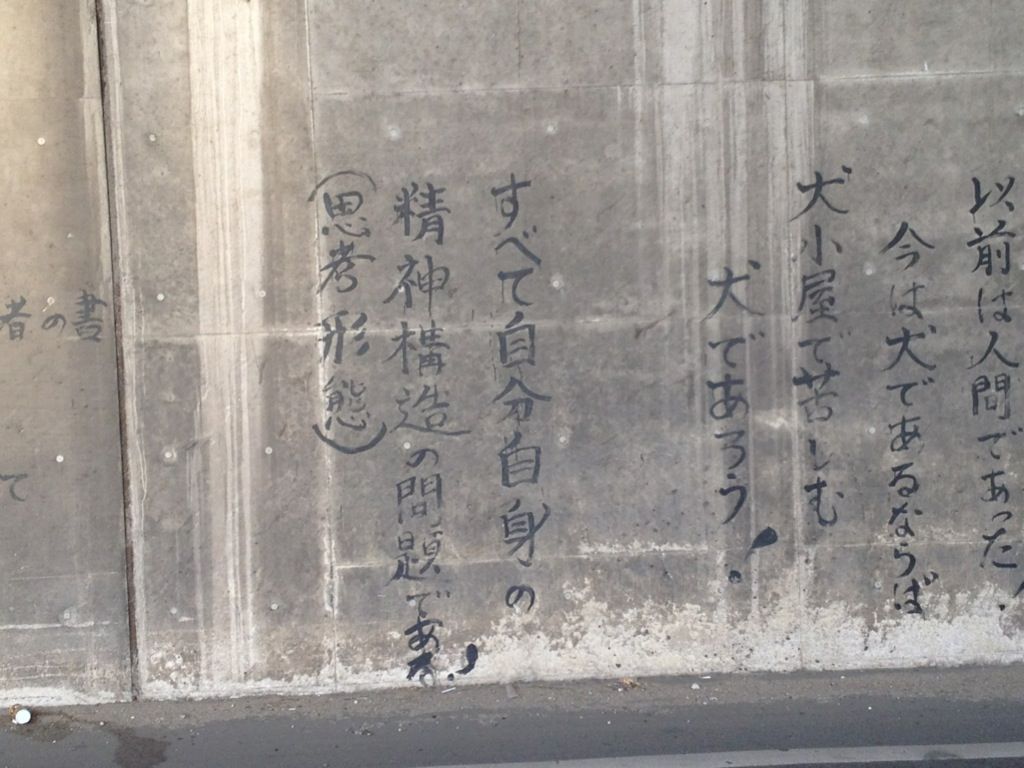 以前は人間であった!
今は犬であるならば
犬小屋で苦しむ
犬であろう!
すべて自分自身の
精神構造の問題である!
(思考形態)
書の者
て